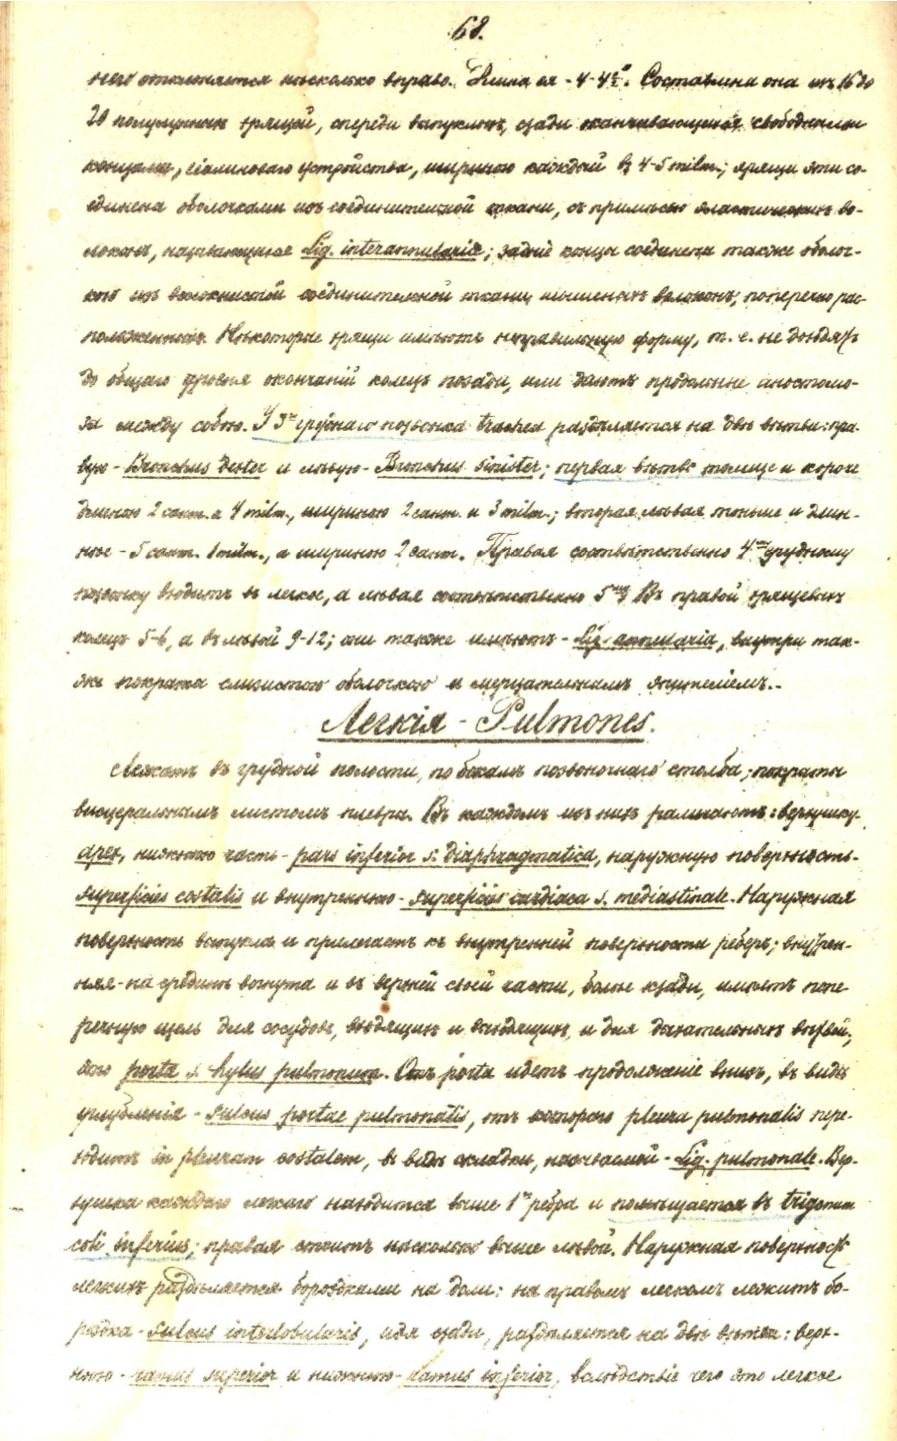 68.
него отклоняется нѣсколько вправо. Длина ея - 4-4½". Составлена она изъ 16 до
20 полулунныхъ хрящей, спереди выпуклыхъ, сзади оканчивающихся свободными
концами, гіалиноваго устройства, шириною каждый въ 4-5 milm.; хрящи эти со-
единены оболочками изъ соединительной ткани, съ примѣсью эластическихъ во-
локонъ, называющіяся Lig. interannularia; задніе концы соединены также оболоч-
кою изъ волокнистой соединительной ткани, мышечныхъ волоконъ, поперечно рас-
положенныхъ. Нѣкоторые хрящи имѣютъ неправильную форму, т. е. не доходятъ
до общаго уровня окончаній колецъ позади, или даютъ продольные анастомо-
зы между собою. У 3го грудного позвонка trachea раздѣляется на двѣ вѣтви: пра-
вую - Bronchus dexter и лѣвую - Bronchus sinister; первая вѣтвь толще и короче
длиною 2 сант. и 4 milm., шириною 2 сант. и 3 milm.; вторая, лѣвая тоньше и длин-
нѣе - 5 сант. 1 milm., а шириною 2 сант. Правая соотвѣтственно 4му грудному
позвонку входитъ въ легкое, а лѣвая соотвѣтственно 5му. Въ правой хрящевыхъ
колецъ 5-6, а въ лѣвой 9-12; они также имѣютъ - Lig. annularia, внутри так-
же покрыты слизистою оболочкою и мерцательнымъ эпителіемъ.-
Легкія - Pulmones.
Лежатъ въ грудной полости, по бокамъ позвоночнаго столба; покрыты
висцеральнымъ листомъ плевры. Въ каждомъ изъ нихъ различаютъ: верхушку-
apex, нижнюю часть - pars inferior s. diaphragmatica, наружную поверхность-
superficies costalis и внутреннюю - superficies cardiaca s. mediastinale. Наружная
поверхность выпукла и прилегаетъ къ внутренней поверхности реберъ; внутрен-
няя - на срединѣ вогнута и въ верхней своей части, болѣе кзади, имѣетъ попе
речную щель для сосудовъ, входящихъ и выходящихъ, и для дыхательныхъ вѣтвей;
это porta s. hylus pulmonum. Отъ porta идетъ продолженіе внизъ, въ видѣ
углубленія - sulcus portae pulmonalis, отъ котораго pleura pulmonalis пере-
ходитъ in pleuram costalem, въ видѣ складки, называемой - Lig. pulmonale. Вер-
хушка каждаго легкаго находится выше 1го ребра и помѣщается въ trigonum
coli inferius; правая стоитъ нѣсколько выше лѣвой. Наружная поверхность
легкихъ раздѣляется бороздками на доли: на правомъ легкомъ лежитъ бо-
роздка - sulcus interlobularis, идя сзади, раздѣляется на двѣ вѣтви: верх-
нюю - ramus superior и нижнюю - ramus inferior, вслѣдствіе чего это легкое